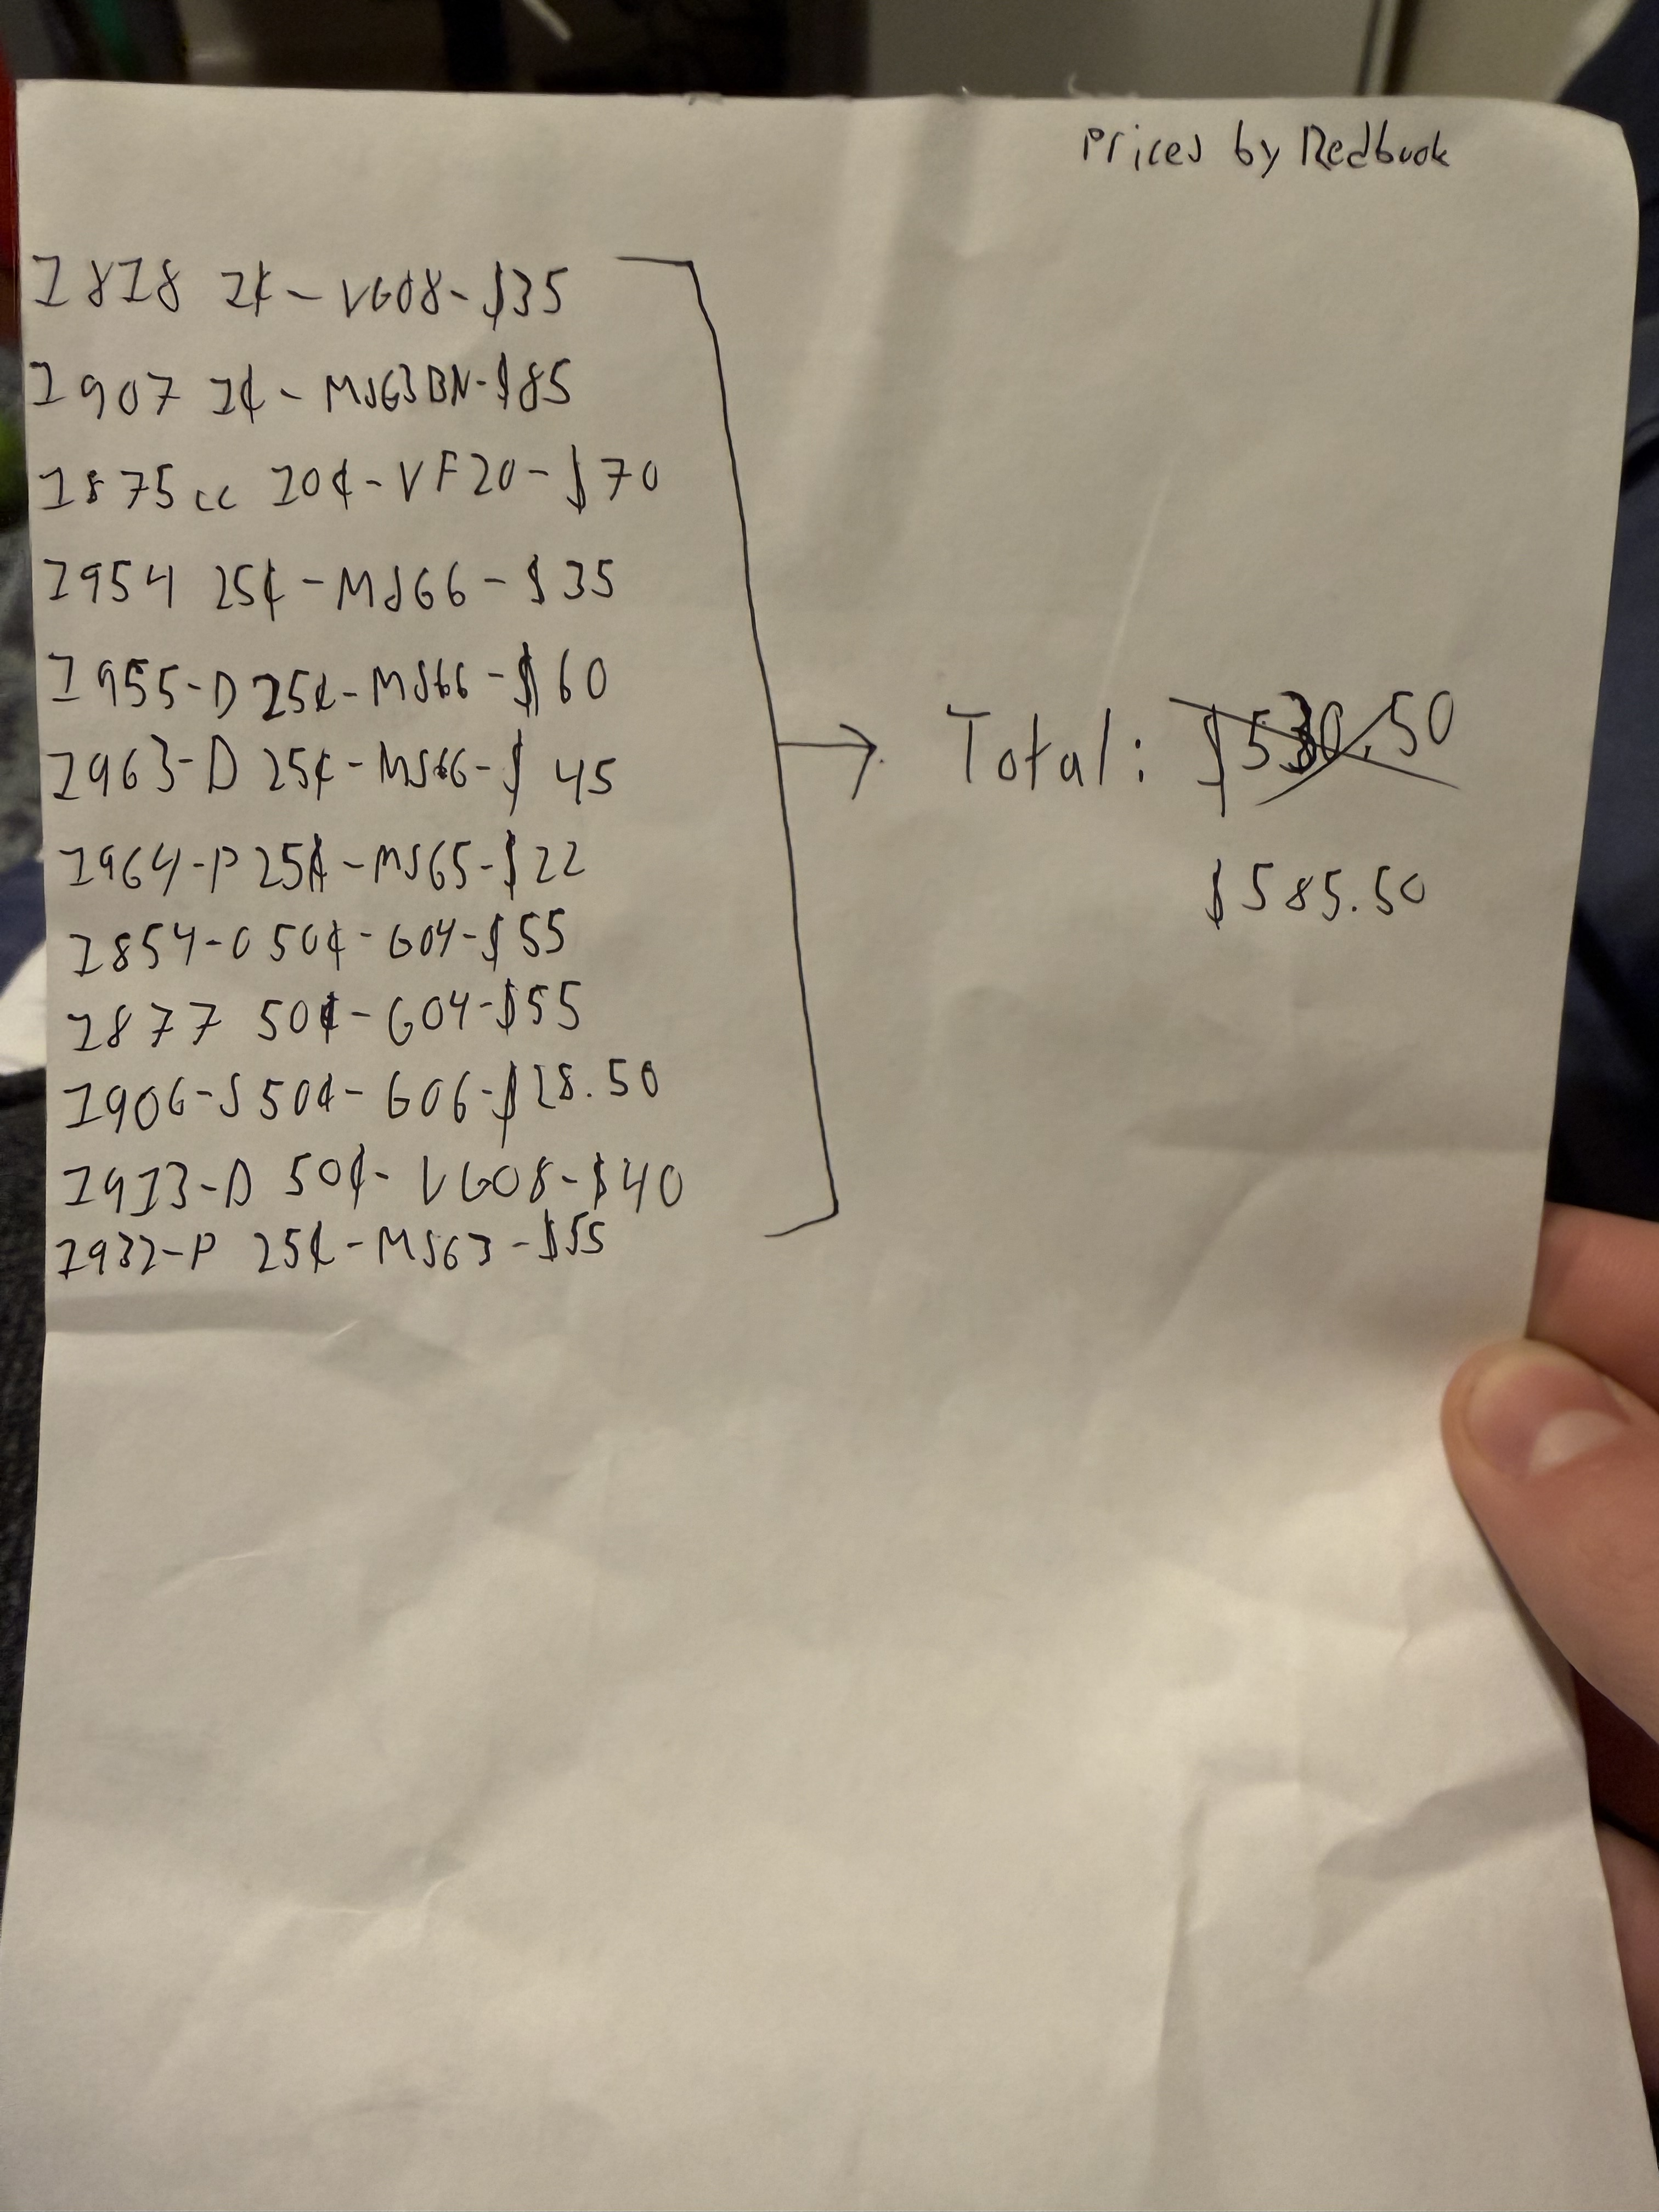 Prices by Redbook
1818 1¢ - VG08 - $35
1907 1¢ - MS63BN - $85
1875cc 10¢ - VF20 - $70
1954 25¢ - MS66 - $35
1955-D 25¢ - MS66 - $60
1963-D 25¢ - MS66 - $45
1964-P 25¢ - MS65 - $22
1854-O 50¢ - G04 - $55
1877 50¢ - G04 - $55
1906-S 50¢ - G06 - $28.50
1913-D 50¢ - VG08 - $40
1932-P 25¢ - MS63 - $55
Total: $530.50
$585.50